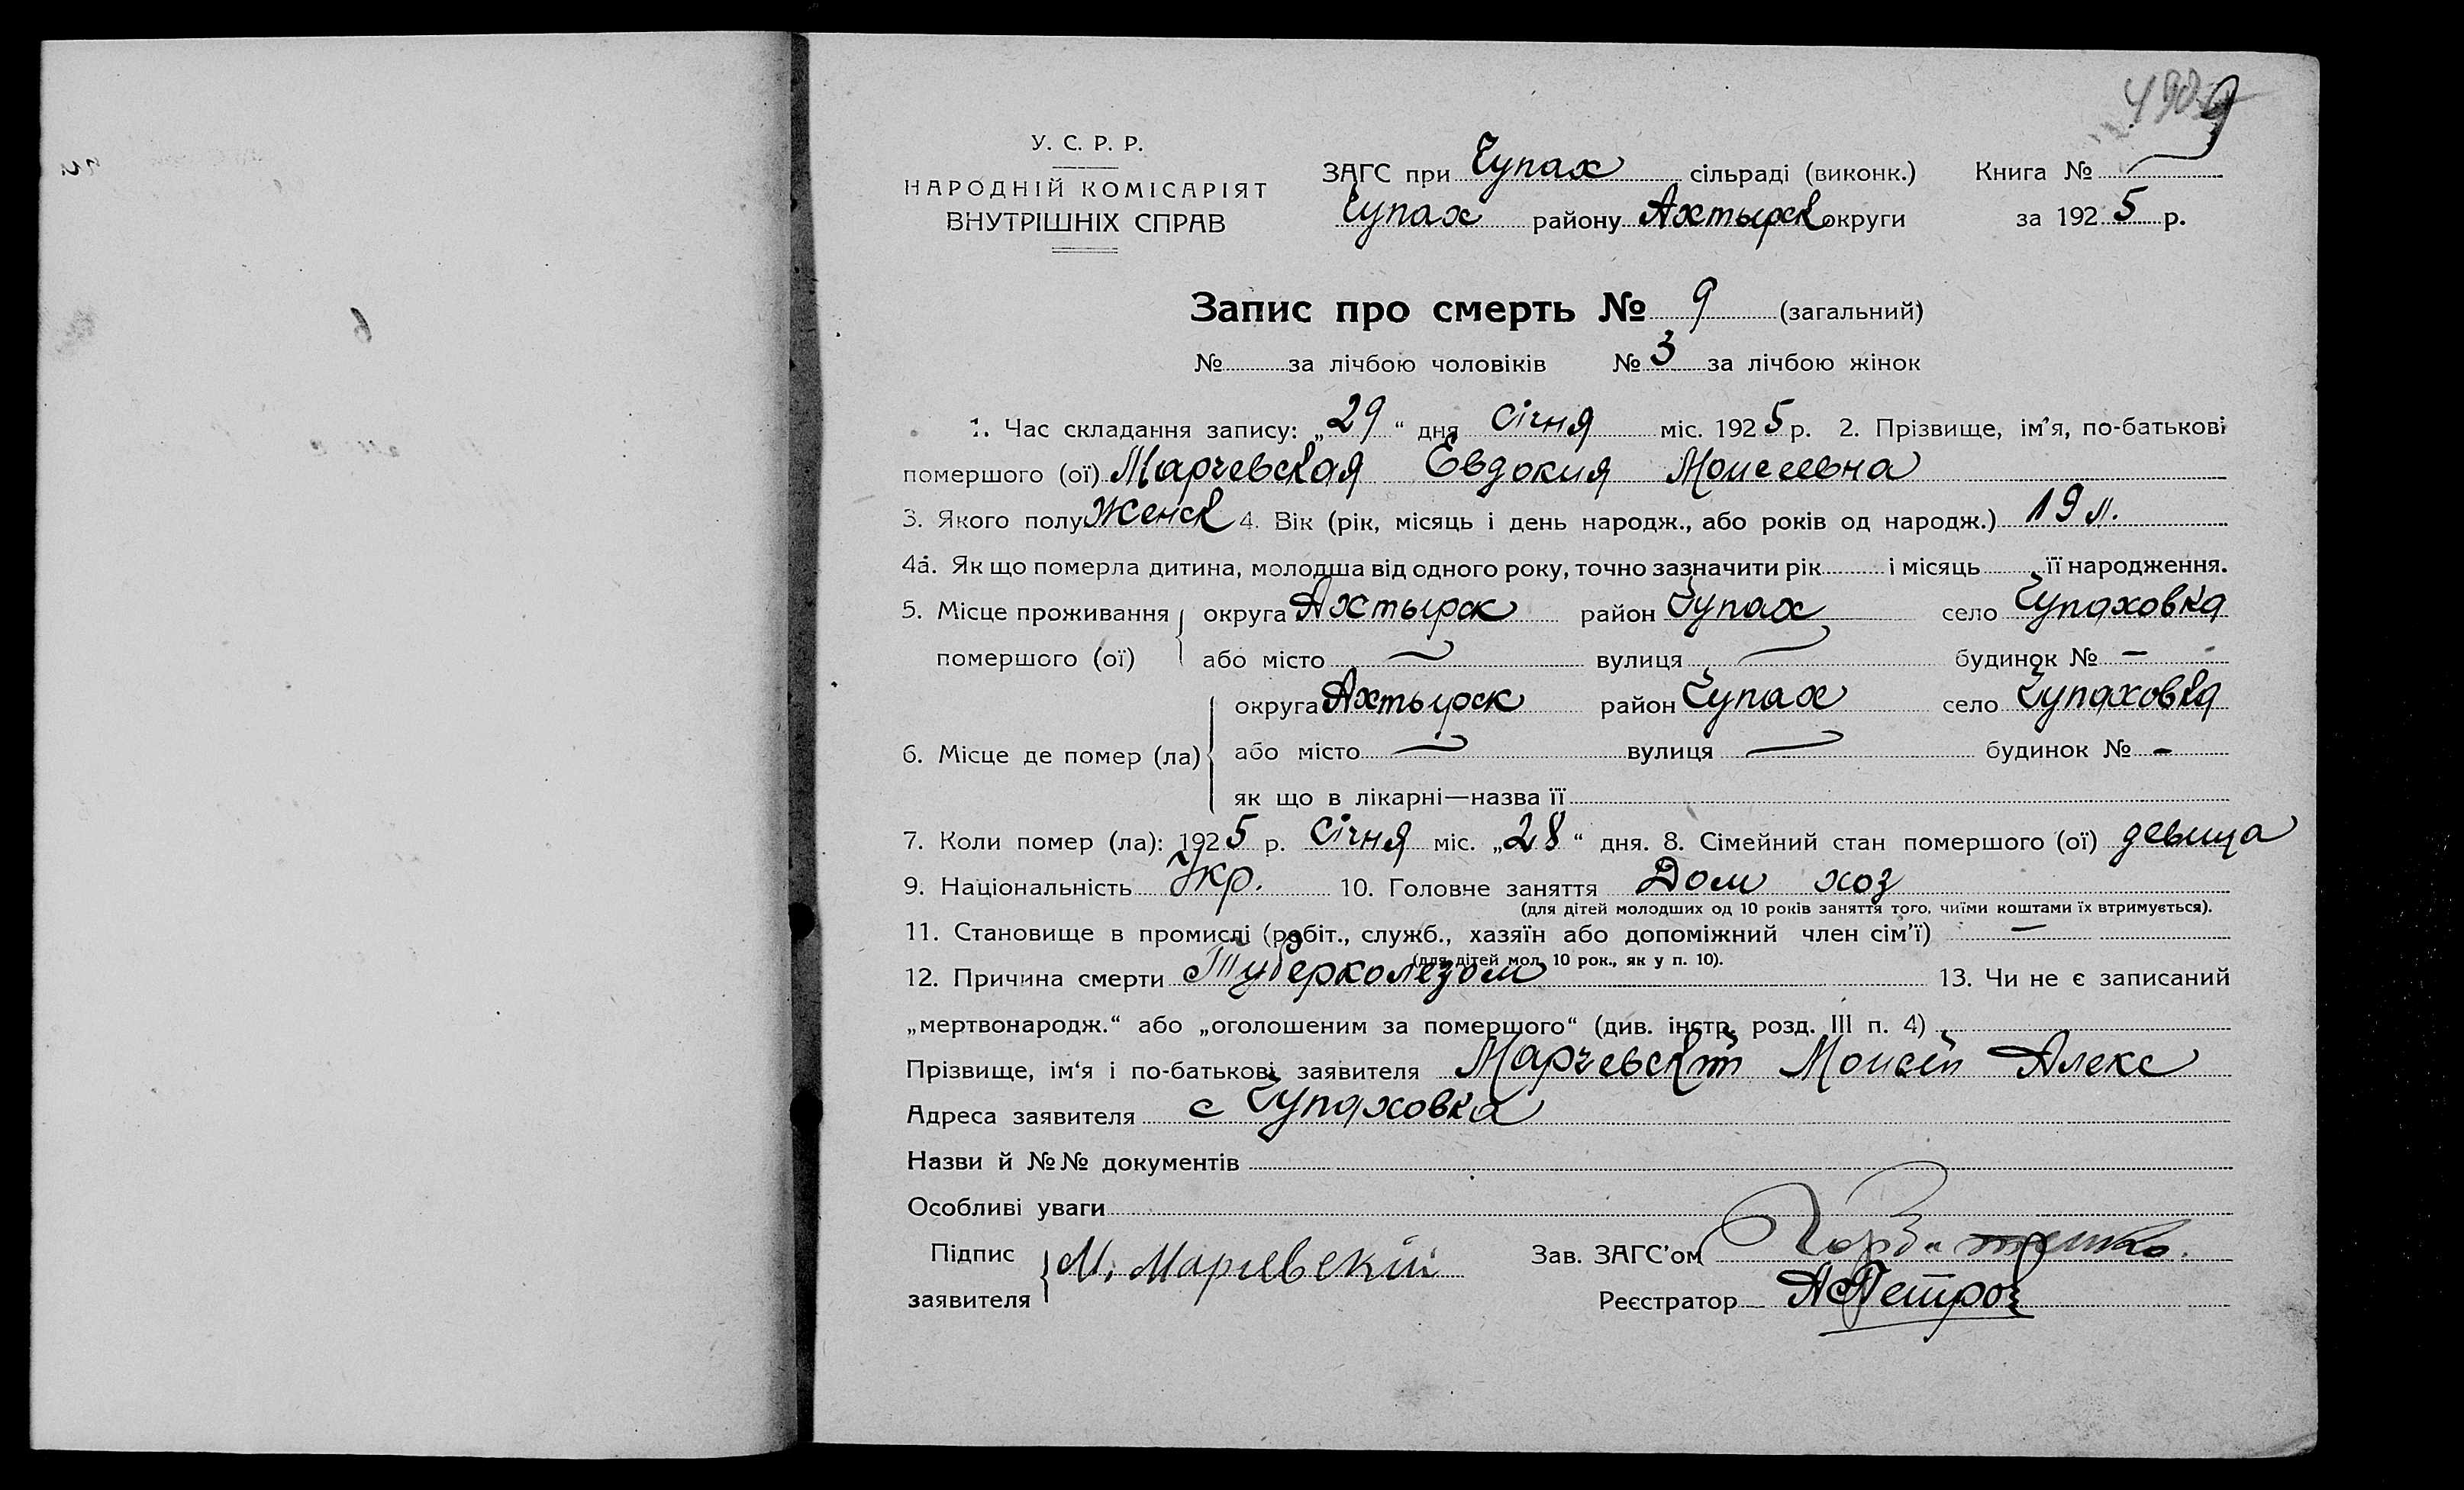 9
У. С. Р. Р.
НАРОДНІЙ КОМІСАРІЯТ
ВНУТРІШНІХ СПРАВ
ЗАГС при Чупах сільраді (виконк.) Книга №
Чупах району Ахтырск округи за 1925 р.
Запис про смерть № 9 (загальний)
№ за лічбою чоловіків № 3 за лічбою жінок
1. Час складання запису: „29“ дня Січня міс. 1925 р. 2. Прізвище, ім'я, по-батькові
помершого (ої) Марчевская Евдокия Моисеевна
3. Якого полу Женск 4. Вік (рік, місяць і день народж., або років од народж.) 19 л.
4а. Як що померла дитина, молодша від одного року, точно зазначити рік і місяць її народження.
5. Місце проживання округа Ахтырск район Чупах село Чупаховка
помершого (ої) або місто — вулиця — будинок № —
округа Ахтырск район Чупах село Чупаховка
6. Місце де помер (ла) або місто — вулиця — будинок № —
як що в лікарні—назва її
7. Коли помер (ла): 1925 р. Січня міс. „28“ дня. 8. Сімейний стан помершого (ої) девица
9. Національність Укр. 10. Головне заняття Дом хоз
(для дітей молодших од 10 років заняття того, чиїми коштами їх втримується).
11. Становище в промислі (робіт., служб., хазяїн або допоміжний член сім'ї) —
(для дітей мол. 10 рок., як у п. 10).
12. Причина смерти Туберколезом 13. Чи не є записаний
„мертвонародж.“ або „оголошеним за помершого“ (див. інстр. розд. III п. 4)
Прізвище, ім'я і по-батькові заявителя Марчевскій Моисей Алекс
Адреса заявителя с Чупаховка
Назви й №№ документів
Особливі уваги
Підпис заявителя М. Марчевскій Зав. ЗАГС'ом
Реєстратор АПетров